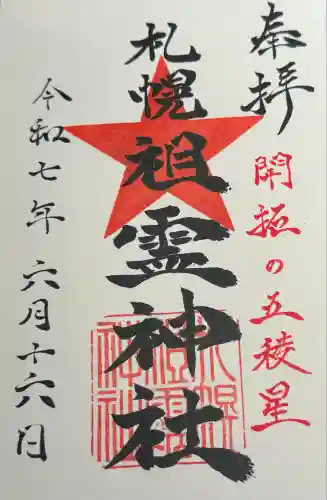 奉拝
開拓の五稜星
札幌祖霊神社
令和七年六月十六日
札幌祖霊神社